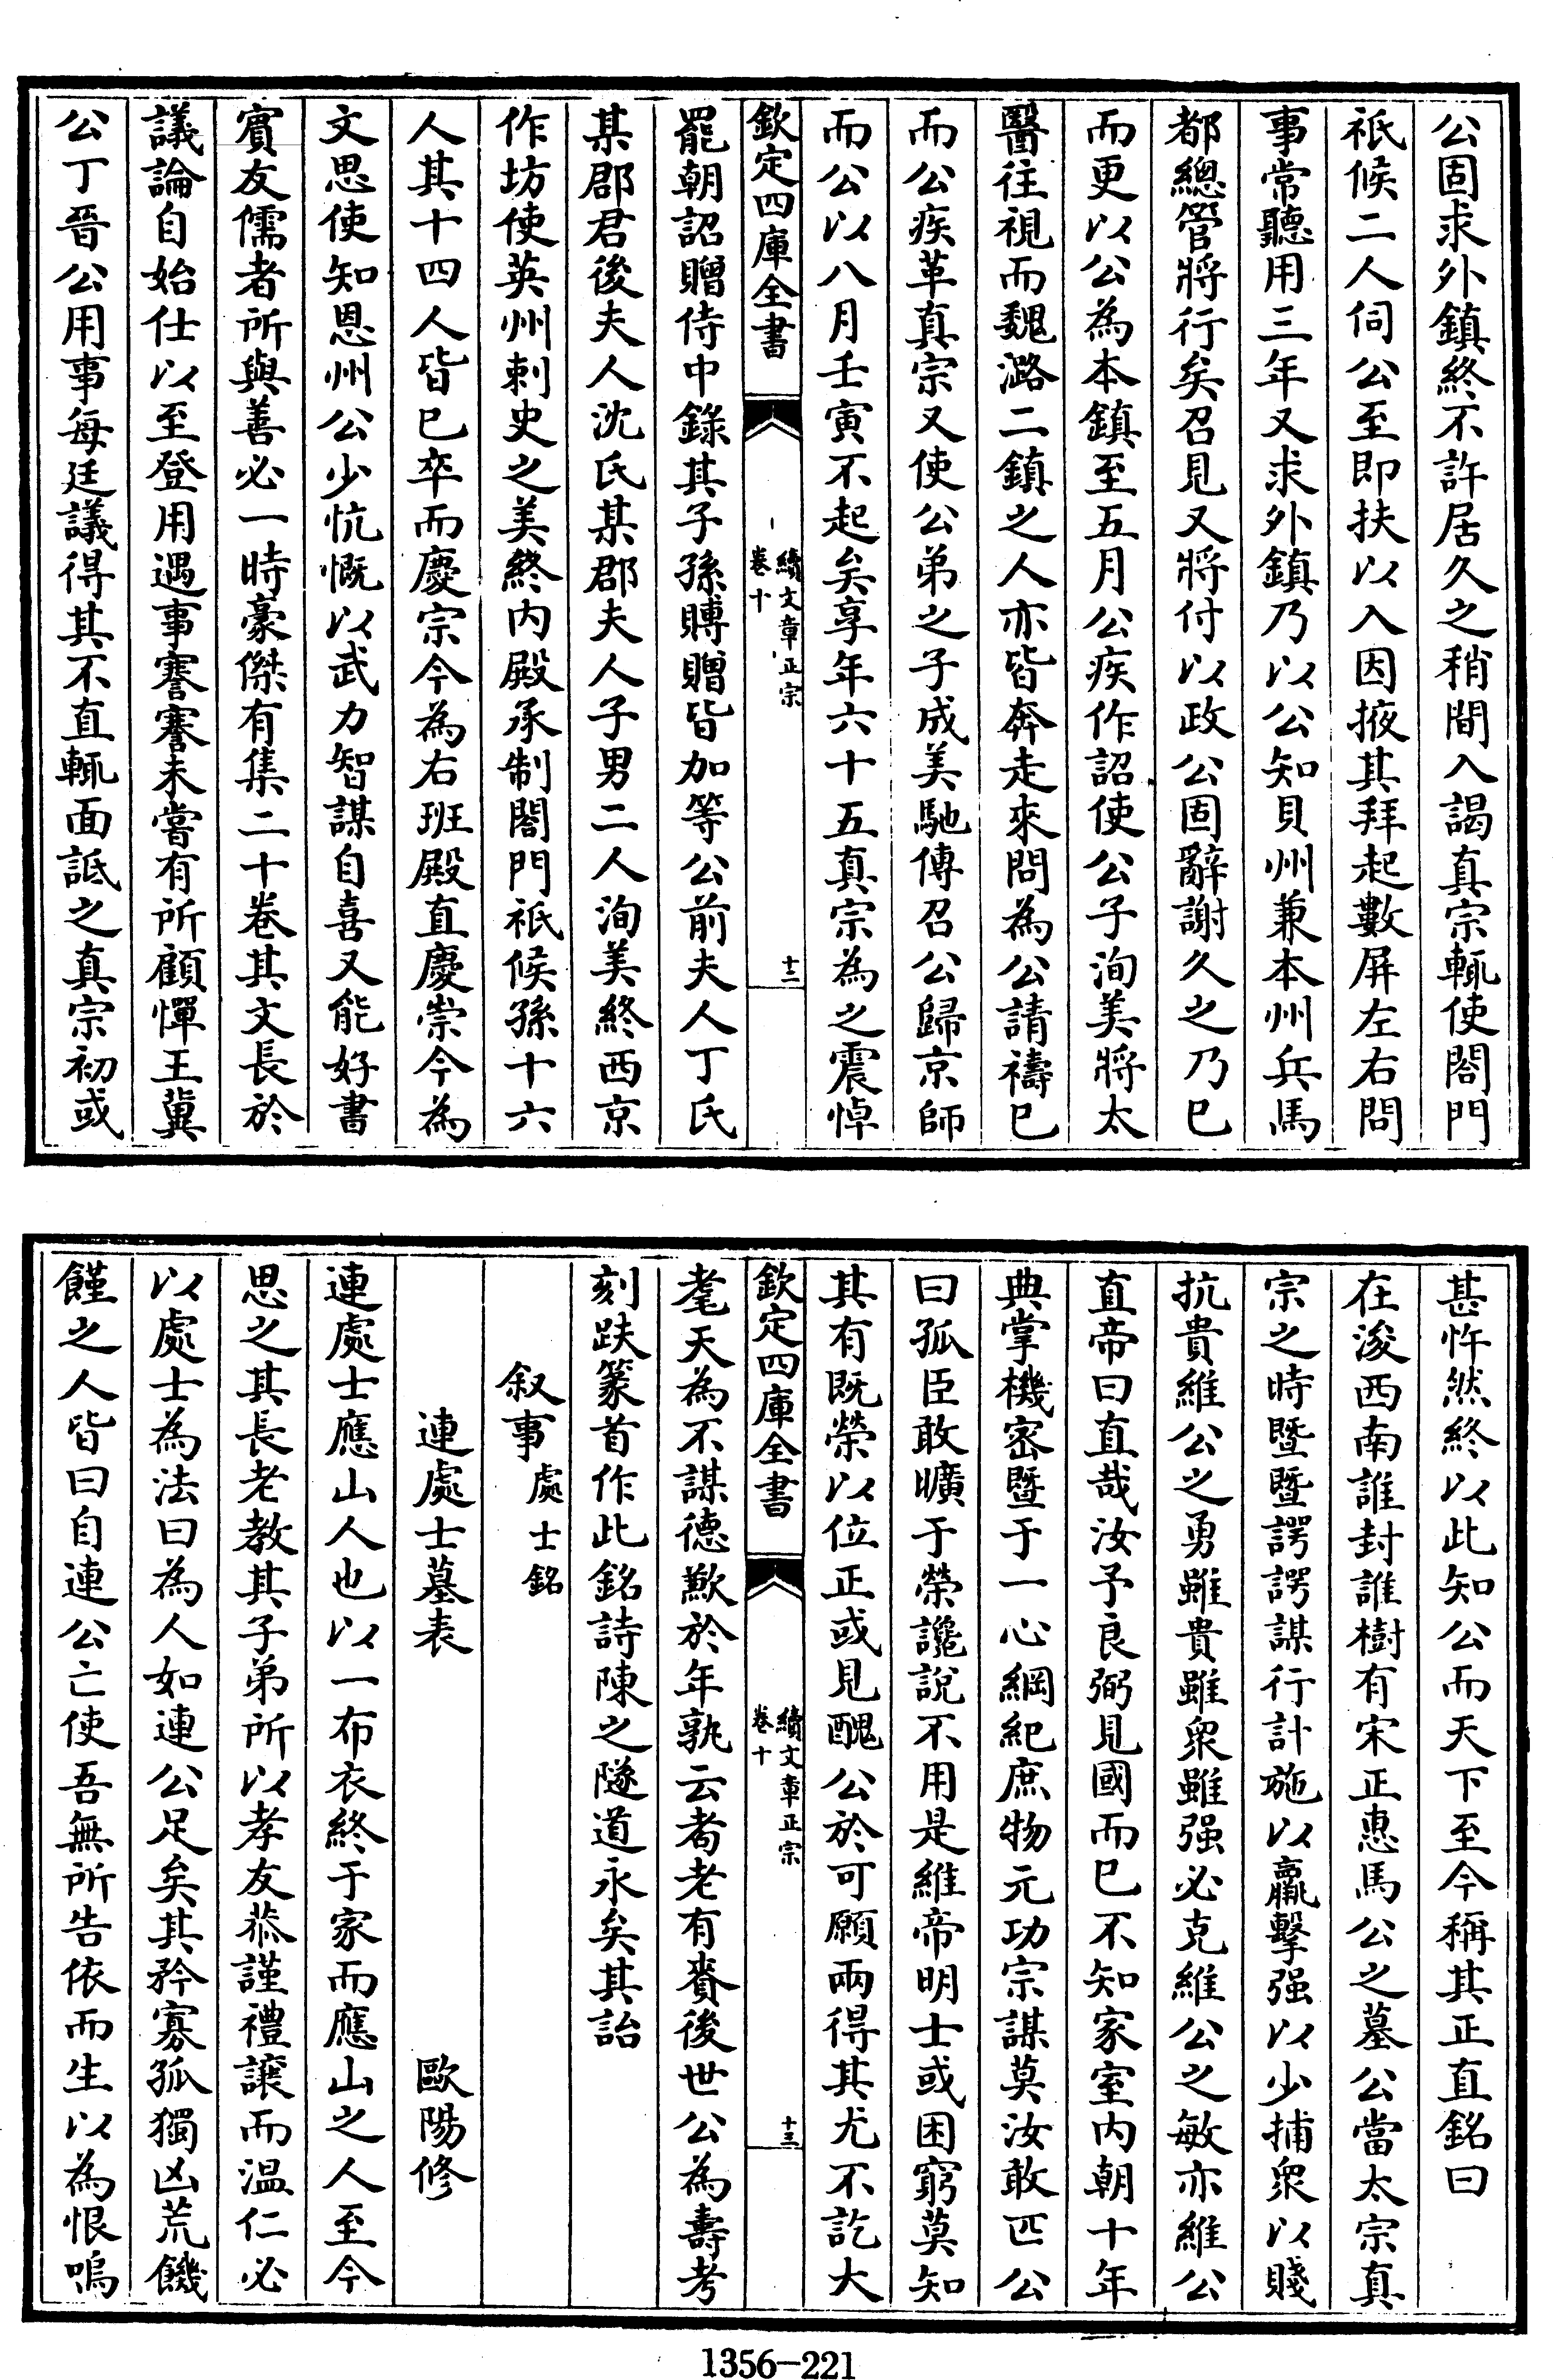 公固求外鎮終不許居久之稍間入謁真宗輒使閤門
祇候二人伺公至即扶以入因掖其拜起數屏左右問
事常聽用三年又求外鎮乃以公知貝州兼本州兵馬
都總管將行矣召見又將付以政公固辭謝久之乃已
而更以公為本鎮至五月公疾作詔使公子洵美將太
醫往視而魏潞二鎮之人亦皆奔走來問為公請禱已
而公疾革真宗又使公弟之子成美馳傳召公歸京師
而公以八月壬寅不起矣享年六十五真宗為之震悼
欽定四庫全書
續文章正宗
卷十
十二
罷朝詔贈侍中錄其子孫賻贈皆加等公前夫人丁氏
某郡君後夫人沈氏某郡夫人子男二人洵美終西京
作坊使英州刺史之美終內殿承制閤門祇候孫十六
人其十四人皆已卒而慶宗今為右班殿直慶崇今為
文思使知恩州公少忼慨以武力智謀自喜又能好書
賓友儒者所與善必一時豪傑有集二十卷其文長於
議論自始仕以至登用遇事謇謇未嘗有所顧憚王冀
公丁晉公用事每廷議得其不直輒面詆之真宗初或
甚忤然終以此知公而天下至今稱其正直銘曰
在浚西南誰封誰樹有宋正惠馬公之墓公當太宗真
宗之時暨暨諤諤謀行計施以羸擊强以少捕衆以賤
抗貴維公之勇雖貴雖衆雖强必克維公之敏亦維公
直帝曰直哉汝予良弼見國而已不知家室內朝十年
典掌機密暨于一心綱紀庶物元功宗謀莫汝敢匹公
曰孤臣敢曠于榮讒說不用是維帝明士或困窮莫知
其有既榮以位正或見醜公於可願兩得其尤不訖大
欽定四庫全書
續文章正宗
卷十
十三
耄天為不謀德歉於年孰云耉老有賚後世公為壽考
刻趺篆首作此銘詩陳之隧道永矣其詒
叙事處士銘
連處士墓表 歐陽修
連處士應山人也以一布衣終于家而應山之人至今
思之其長老教其子弟所以孝友恭謹禮讓而溫仁必
以處士為法曰為人如連公足矣其矜寡孤獨凶荒饑
饉之人皆曰自連公亡使吾無所告依而生以為恨嗚
1356-221